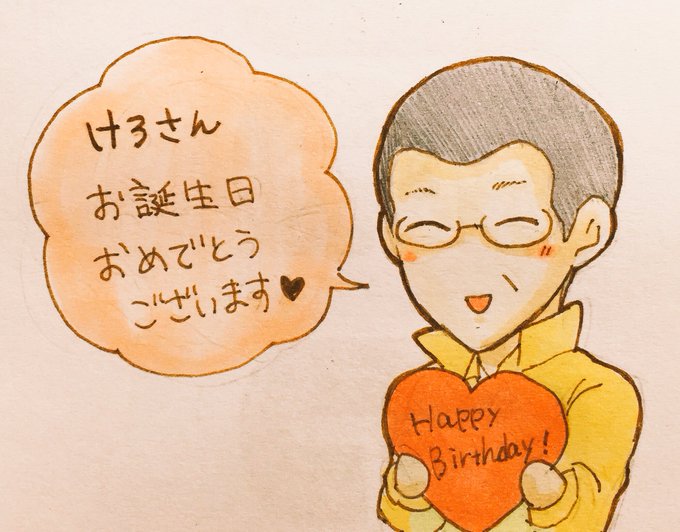 けろさん
お誕生日
おめでとう
ございます♥
Happy
Birthday!